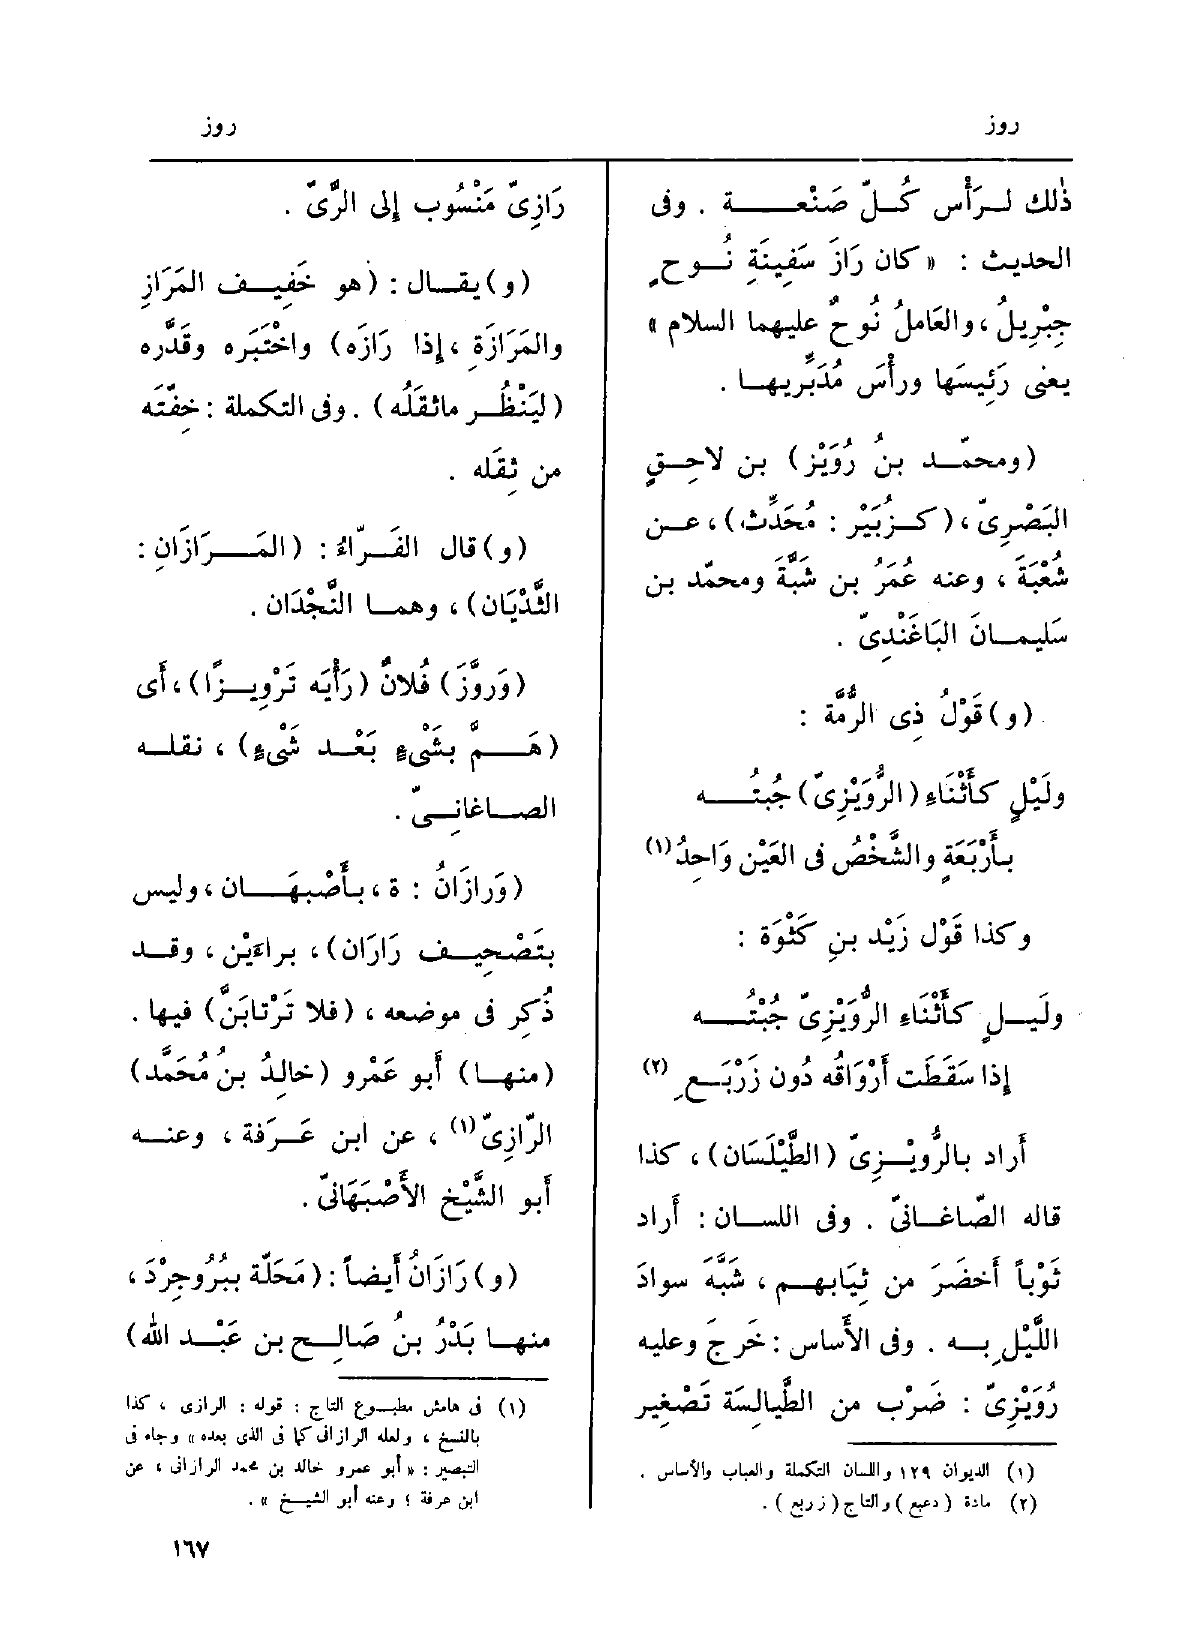 روز
روز
ذٰلك لـرَأْس كُـلّ صَنْعـــــة . وفى
الحديث : « كان رَازَ سَفِينَةِ نُـوحٍ
جِبْرِيلُ ، والعَامِلُ نُوحٌ عليهما السلام »
يعنى رَئِيسَها ورأْسَ مُدَبِّريهـا .
(ومحمّـد بنُ رُوَيْز) بن لاحِـقٍ
البَصْرِىّ ، (كـزُبَيْر : مُحَدِّث) ، عـن
شُعْبَة ، وعنه عُمَرُ بن شَبَّةَ ومحمّد بن
سَليمـانَ البَاغَنْدِىّ .
(و) قَوْلُ ذِى الرُّمَّة :
ولَيْلٍ كأَثْنَاءِ (الرُّوَيْزِىّ) جُبتُــــه
بـأَرْبَعَةٍ والشَّخْصُ فى العَيْن وَاحِدُ (١)
وكذا قَوْل زَيْد بنِ كَثْوَة :
ولَيـلٍ كأَثْنَاء الرُّوَيْزِىّ جُبْتُــــه
إذا سَقَطَت أَرْوَاقُه دُون زَرْبَـعِ (٢)
أَراد بالرُّوَيْـزِىّ (الطَّيْلَسَان) ، كذا
قاله الصّاغـانىّ . وفى اللسـان : أَراد
ثَوْباً أَخضَرَ من ثِيَابهـم ، شَبَّهَ سوادَ
اللَّيْل بِــه . وفى الأَساس : خَرجَ وعليه
رُوَيْزِىّ : ضَرْب من الطَّيالِسَة تَصْغير
(١) الديوان ١٢٩ واللسان التكملة والعباب والأساس .
(٢) مادة (دعبع) والتاج (زربع) .
رَازِىّ مَنْسُوب إلى الرَّىّ .
(و) يقـال : (هو خَفِيـف المَرَازِ
والمَرَازَةِ ، إذا رَازَه) واخْتَبَره وقَدَّره
(ليَنْظُـر ماثقَلُه) . وفى التكملة : خِفّتَه
من ثِقَله .
(و) قال الفَـرّاءُ : (المَـــرَازَانِ :
الثَّدْيَان) ، وهمـا النَّجْدَان .
(وَروَّزَ) فُلانٌ (رَأْيَه تَرْوِيـزًا) ، أَى
(هَـــمَّ بشَىْءٍ بَعْـد شَىْءٍ) ، نقلـه
الصـاغانِـىّ .
(وَرازَانُ : ة ، بـأَصْبهَــان ، وليس
بتَصْحِيـف رَارَان) ، براءَيْن ، وقـد
ذُكِر فى موضعه ، (فلا تَرْتابَنَّ) فيها .
(منهـا) أَبو عَمْرو (خالِدُ بنُ مُحَمَّد)
الرّازِىّ (١) ، عن ابن عَـرَفة ، وعنـه
أَبو الشَّيْخ الأَصْبَهَانىّ .
(و) رَازَانُ أَيضاً : (مَحَلّة ببُرُوجِرْدَ ،
منهـا بَدْرُ بنُ صَالِـح بن عَبْـد الله)
(١) فى هامش مطبـوع التاج : قوله : الرازى ، كذا
بالنسخ ، ولعله الرازانى كما فى الذى بعده » وجاء فى
التبصير : « أبو عمرو خالد بن محمد الرازانى ، عن
ابن عرفة ؛ وعنه أبو الشيـخ » .
١٦٧